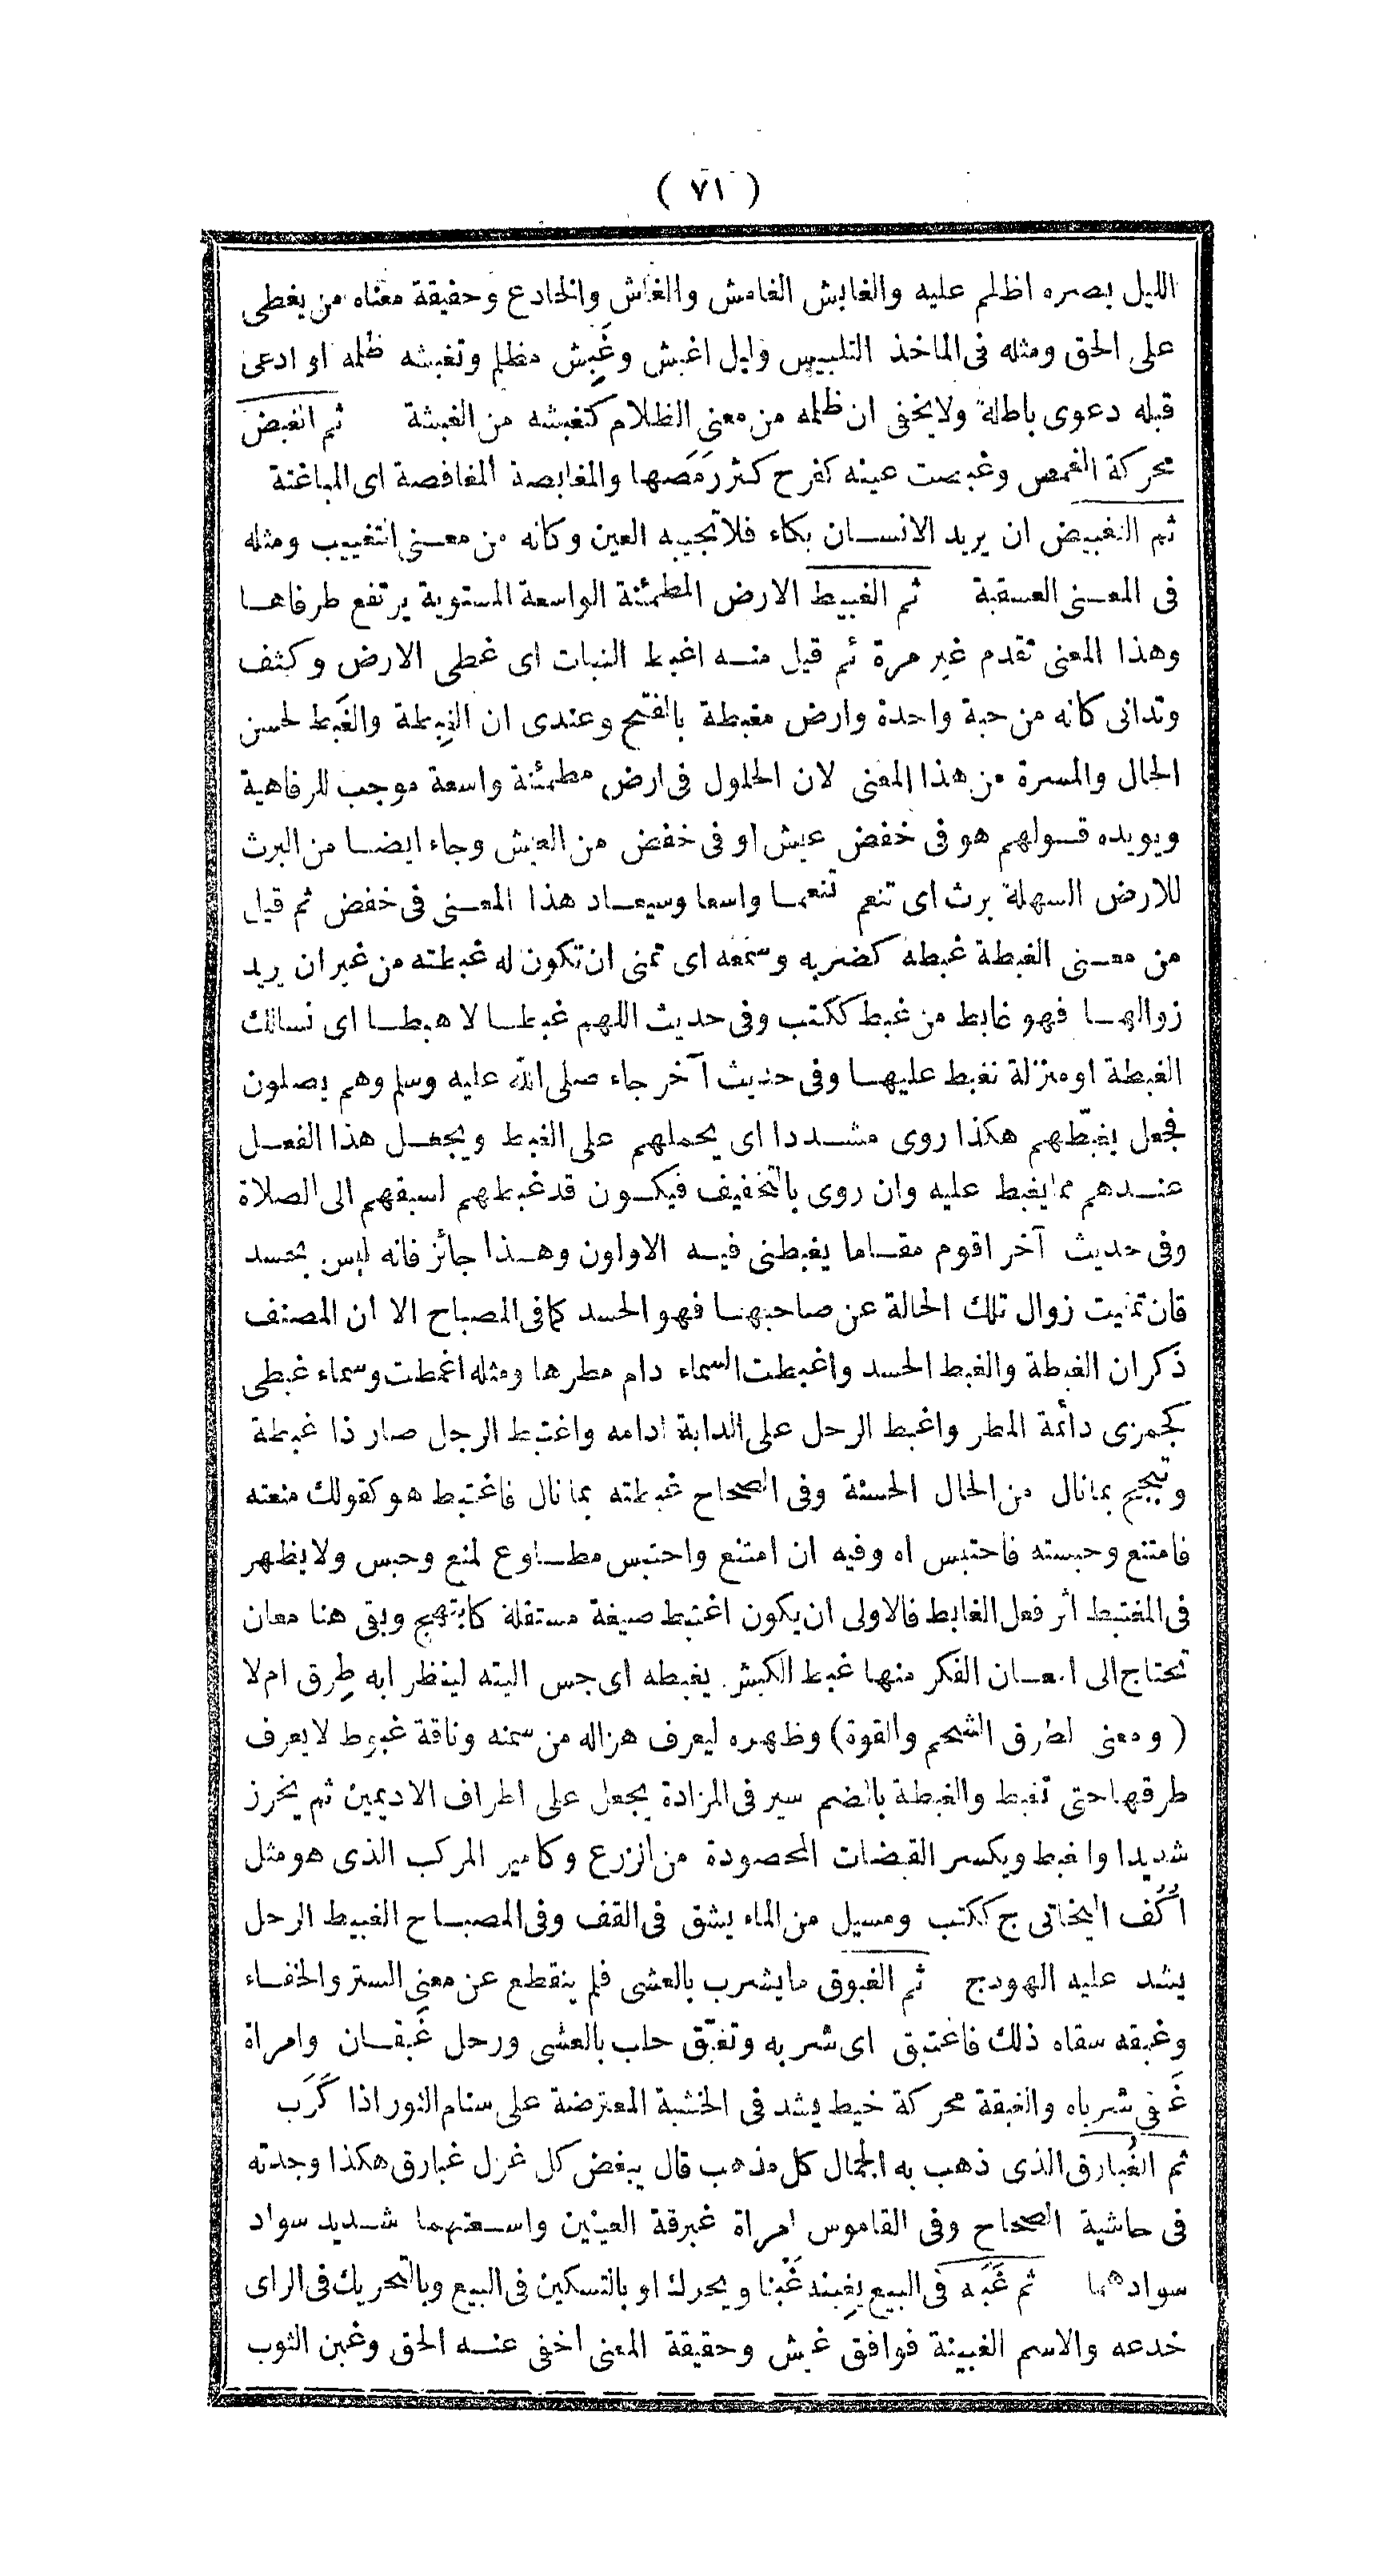 ( ٧١ )
الليل بصره اظلم عليه والغابش الغامش والغاش والخادع وحقيقة معناه من يغطى
على الحق ومثله فى الماخذ التلبيس وليل اغبش وغَبِش مظلم وتغبشه ظلمه او ادعى
قبله دعوى باطلة ولا يخفى ان ظلمه من معنى الظلام كتغبشه من الغبشة ثم الغبص
محركة الغمص وغبصت عينه كفرح كثر رَمَصها والمغابصة المغافصة اى المباغتة
ثم التغبيض ان يريد الانسان بكاء فلا تجيبه العين وكانه من معنى التغييب ومثله
فى المعنى العسقبة ثم الغبيط الارض المطمئنة الواسعة المستوية يرتفع طرفاها
وهذا المعنى تقدم غير مرة ثم قيل منه اغبط النبات اى غطى الارض وكثف
وتدانى كانه من حبة واحدة وارض مغبطة بالفتح وعندى ان الغِبطة والغَبط لحسن
الحال والمسرة من هذا المعنى لان الحلول فى ارض مطمئنة واسعة موجب للرفاهية
ويويده قولهم هو فى خفض عيش او فى خفض من العيش وجاء ايضا من البرث
للارض السهلة برث اى تنعم تنعما واسعا وسيعاد هذا المعنى فى خفض ثم قيل
من معنى الغبطة غبطه كضربه وسمعه اى تمنى ان تكون له غبطته من غير ان يريد
زوالها فهو غابط من غبط ككتب وفى حديث اللهم غبطا لا هبطا اى نسالك
الغبطة او منزلة نغبط عليها وفى حديث آخر جاء صلى الله عليه وسلم وهم يصلون
فجعل يغبّطهم هكذا روى مشددا اى يحملهم على الغبط ويجعل هذا الفعل
عندهم مما يغبط عليه وان روى بالتخفيف فيكون قد غبطهم لسبقهم الى الصلاة
وفى حديث آخر اقوم مقاما يغبطنى فيه الاولون وهذا جائز فانه ليس بحسد
فان تمنيت زوال تلك الحالة عن صاحبها فهو الحسد كما فى المصباح الا ان المصنف
ذكر ان الغبطة والغبط الحسد واغبطت السماء دام مطرها ومثله اغمطت وسماء غبطى
كجمزى دائمة المطر واغبط الرحل على الدابة ادامه واغتبط الرجل صار ذا غبطة
وتبجح بما نال من الحال الحسنة وفى الصحاح غبطته بما نال فاغتبط هو كقولك منعته
فامتنع وحبسته فاحتبس اه وفيه ان امتنع واحتبس مطاوع لمنع وحبس ولا يظهر
فى المغتبط اثر فعل الغابط فالاولى ان يكون اغتبط صيغة مستقلة كابتهج وبقى هنا معان
تحتاج الى امعان الفكر منها غبط الكبش يغبطه اى جس اليته لينظر ابه طِرق ام لا
( ومعنى الطرق الشحم والقوة) وظهره ليعرف هزاله من سمنه وناقة غبوط لا يعرف
طرقها حتى تغبط والغبطة بالضم سير فى المزادة يجعل على اطراف الاديمين ثم يخرز
شديدا والغبط ويكسر القبضات المحصودة من الزرع وكامير المركب الذى هو مثل
اُكُف البخاتى ج ككتب ومسيل من الماء يشق فى القف وفى المصباح الغبيط الرحل
يشد عليه الهودج ثم الغبوق ما يشرب بالعشى فلم ينقطع عن معنى الستر والخفاء
وغبقه سقاه ذلك فاغتبق اى شربه وتغبّق حلب بالعشى ورجل غَبقان وامراة
غَبقى شرباه والغبقة محركة خيط يشد فى الخشبة المعترضة على سنام الثور اذا كَرَب
ثم الغُبارق الذى ذهب به الجمال كل مذهب قال يبغض كل غزل غبارق هكذا وجدته
فى حاشية الصحاح وفى القاموس امراة غبرقة العينين واسعتهما شديد سواد
سوادهما ثم غَبَنه فى البيع يغبِنه غَبْنا ويحرك او بالتسكين فى البيع وبالتحريك فى الراى
خدعه والاسم الغبينة فوافق غبش وحقيقة المعنى اخفى عنه الحق وغبن الثوب